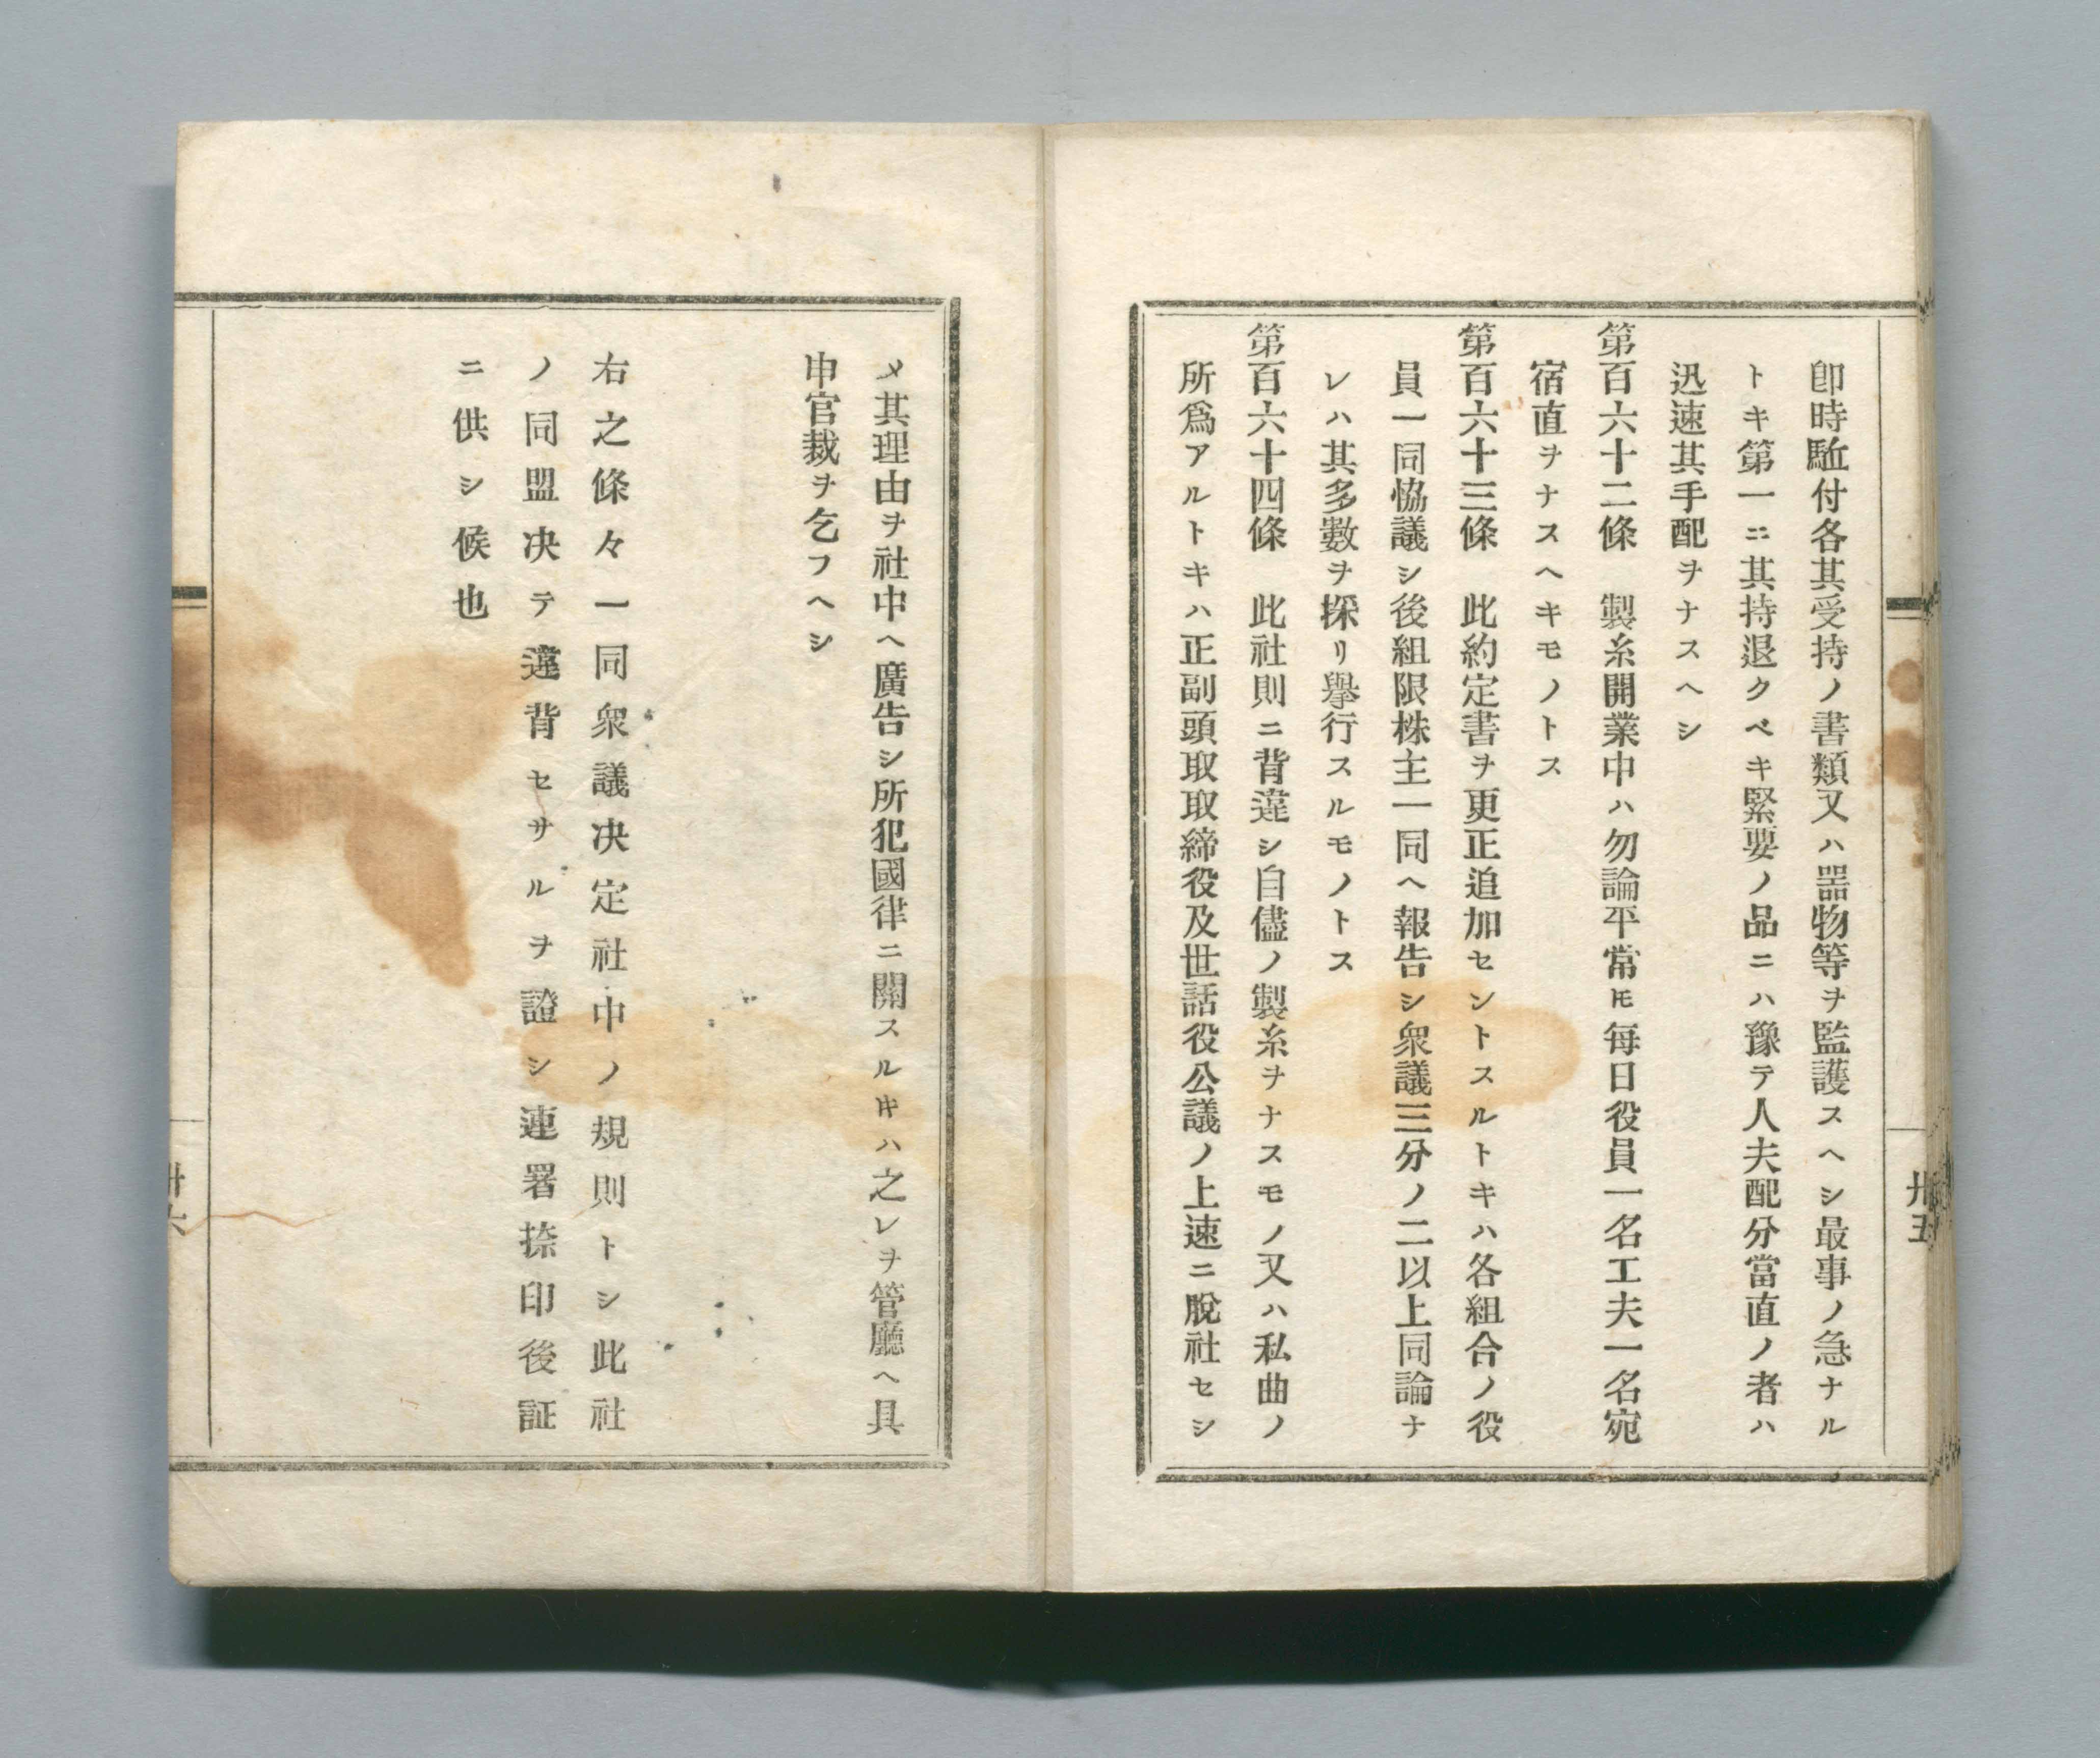 卽時駈付各其受持ノ書類又ハ器物等ヲ監護スヘシ最事ノ急ナル
トキ第一ニ其持退クベキ緊要ノ品ニハ豫テ人夫配分當直ノ者ハ
迅速其手配ヲナスヘシ
第百六十二條　製糸開業中ハ勿論平常ㇳモ每日役員一名工夫一名宛
宿直ヲナスヘキモノトス
第百六十三條　此約定書ヲ更正追加セントスルトキハ各組合ノ役
員一同恊議シ後組限株主一同ヘ報告シ衆議三分ノ二以上同論ナ
レハ其多數ヲ採リ擧行スルモノトス
第百六十四條　此社則ニ背違シ自儘ノ製糸ヲナスモノ又ハ私曲ノ
所爲アルトキハ正副頭取取締役及世話役公議ノ上速ニ脫社セシ
卅五
メ其理由ヲ社中ヘ廣告シ所犯國律ニ關スルㇳキハ之レヲ管廳ヘ具
申官裁ヲ乞フヘシ
右之條々一同衆議决定社中ノ規則トシ此社
ノ同盟决テ違背セサルヲ證シ連署捺印後証
ニ供シ候也
卅六